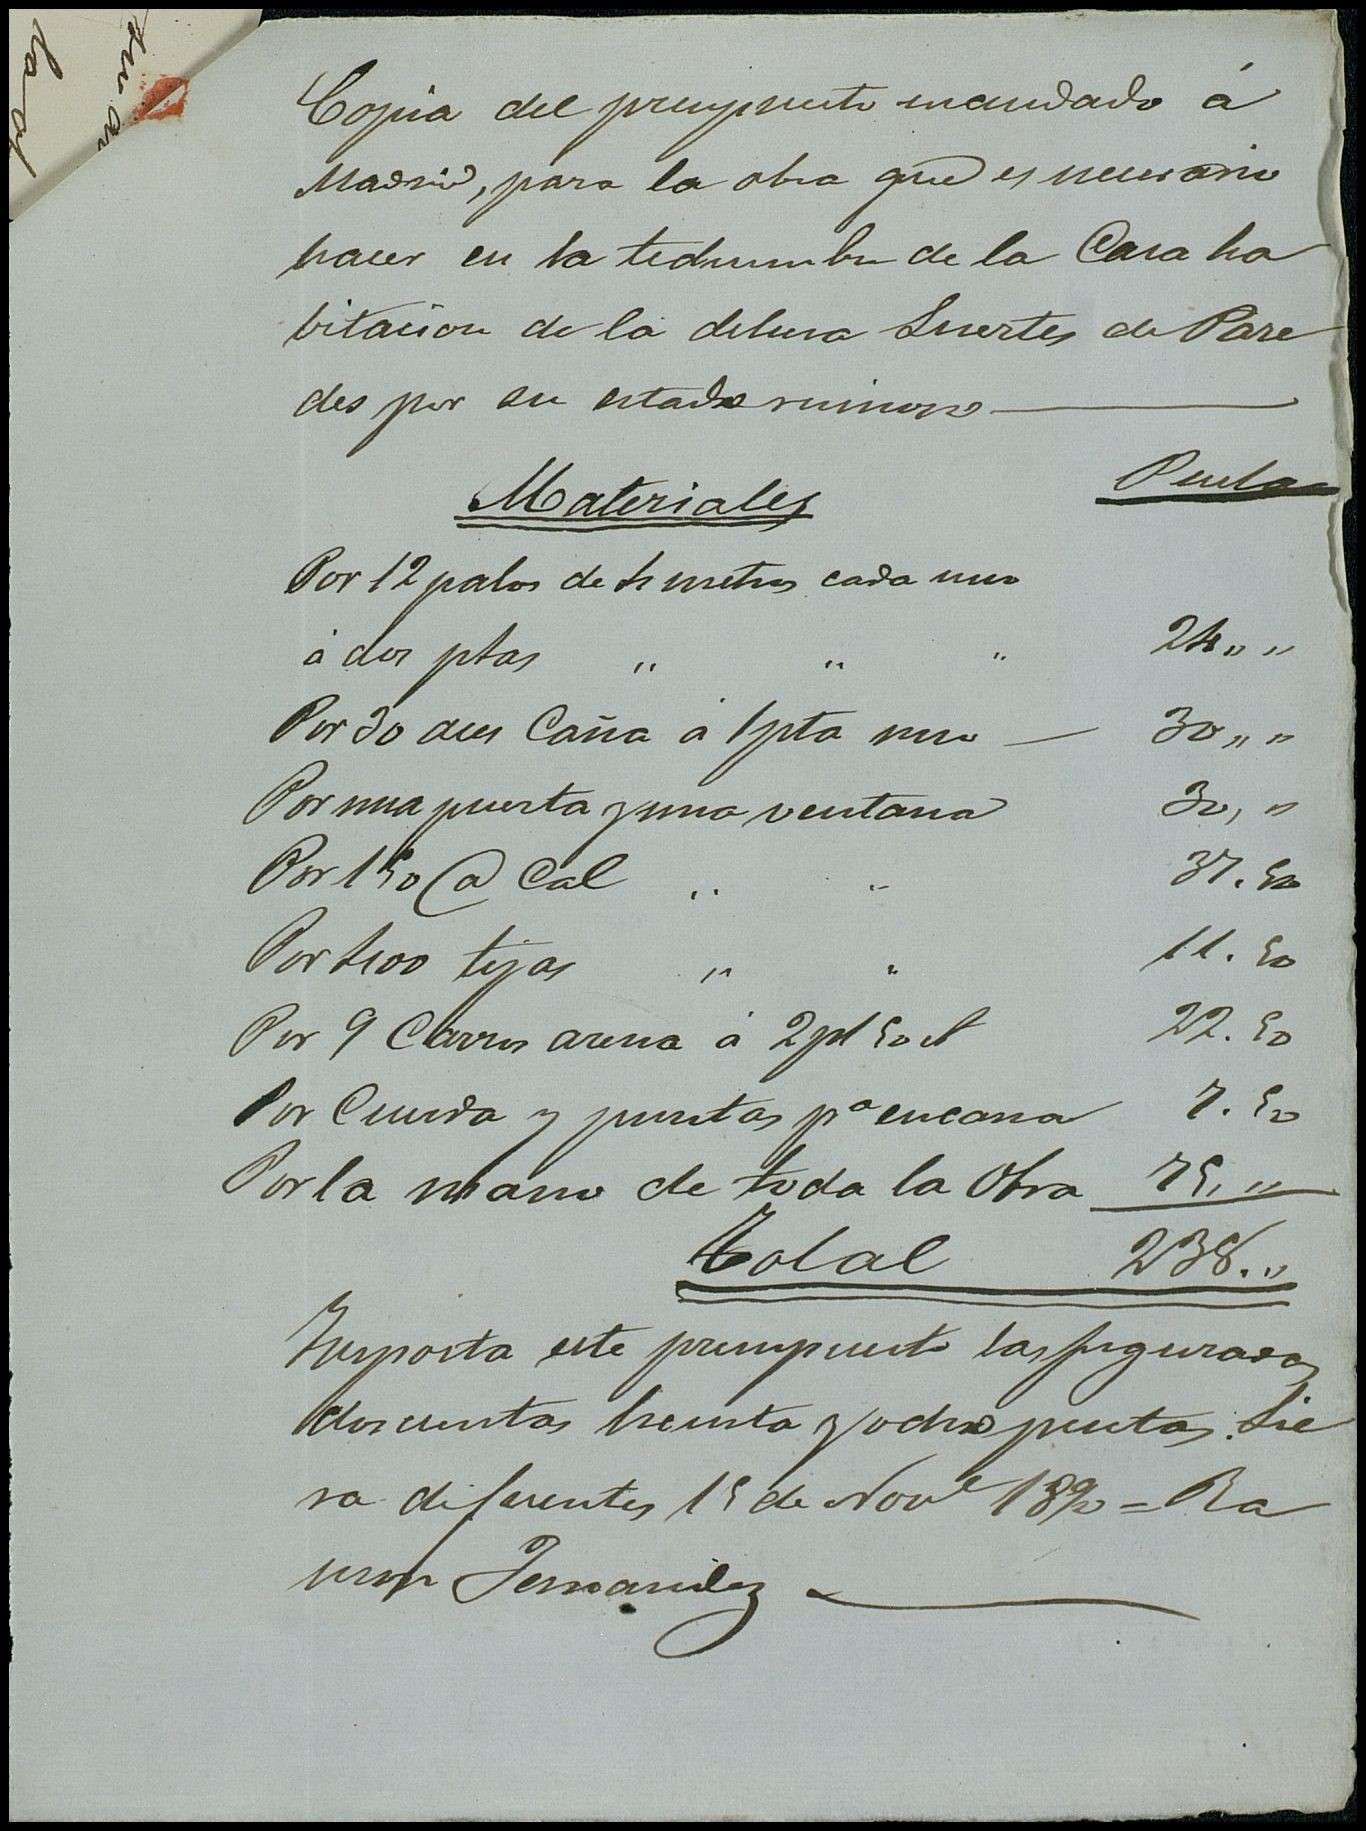 Copia del presupuesto mandado á
Madrid, para la obra que es necesario
hacer en la techumbre de la Casa ha
bitacion de la dehesa Suertes de Pare
des por su estado ruinoso
Materiales Pesetas
Por 12 palos de 4 metros cada uno
á dos ptas " " " 24 " "
Por 30 aces Caña á 1 pta uno — 30 " "
Por una puerta y una ventana 30, "
Por 150 @ Cal " " 37.50
Por 400 tejas " " 11.50
Por 9 Carros arena á 2 pt 50 ct 22.50
Por Cuerda y puntas pa encana 7.50
Por la mano de toda la Obra 75, "
Total 238. "
Importa este presupuesto las figuradas
doscientas treinta y ocho pesetas.
15 de Nove 1890 = Ra
mon Fernandez